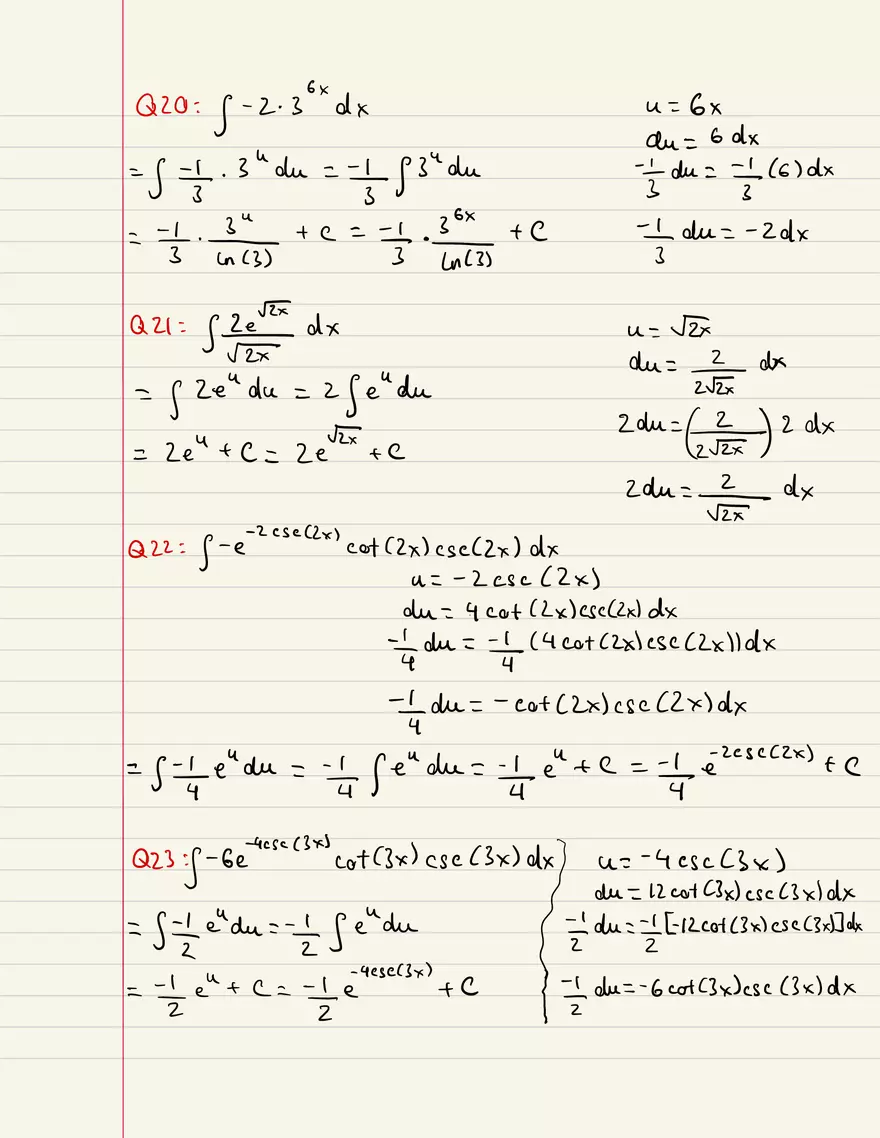 Q20: ∫ -2·3^{6x} dx
u = 6x
du = 6 dx
= ∫ \frac{-1}{3} · 3^u du = \frac{-1}{3} ∫ 3^u du
\frac{-1}{3} du = \frac{-1}{3} (6) dx
= \frac{-1}{3} · \frac{3^u}{ln(3)} + c = \frac{-1}{3} · \frac{3^{6x}}{ln(3)} + C
\frac{-1}{3} du = -2dx
Q21: ∫ \frac{2e^{√2x}}{√2x} dx
u = √2x
du = \frac{2}{2√2x} dx
= ∫ 2e^u du = 2 ∫ e^u du
2du = (\frac{2}{2√2x}) 2 dx
= 2e^u + C = 2e^{√2x} + C
2du = \frac{2}{√2x} dx
Q22: ∫ -e^{-2csc(2x)} cot(2x) csc(2x) dx
u = -2 csc (2x)
du = 4 cot (2x) csc(2x) dx
\frac{-1}{4} du = \frac{-1}{4} (4 cot(2x) csc(2x)) dx
\frac{-1}{4} du = -cot(2x) csc(2x) dx
= ∫ \frac{-1}{4} e^u du = \frac{-1}{4} ∫ e^u du = \frac{-1}{4} e^u + C = \frac{-1}{4} e^{-2csc(2x)} + C
Q23: ∫ -6e^{-4csc(3x)} cot(3x) csc(3x) dx
u = -4 csc(3x)
du = 12 cot(3x) csc(3x) dx
= ∫ \frac{-1}{2} e^u du = \frac{-1}{2} ∫ e^u du
\frac{-1}{2} du = \frac{-1}{2} [-12 cot(3x) csc(3x)] dx
= \frac{-1}{2} e^u + C = \frac{-1}{2} e^{-4csc(3x)} + C
\frac{-1}{2} du = -6 cot(3x) csc(3x) dx